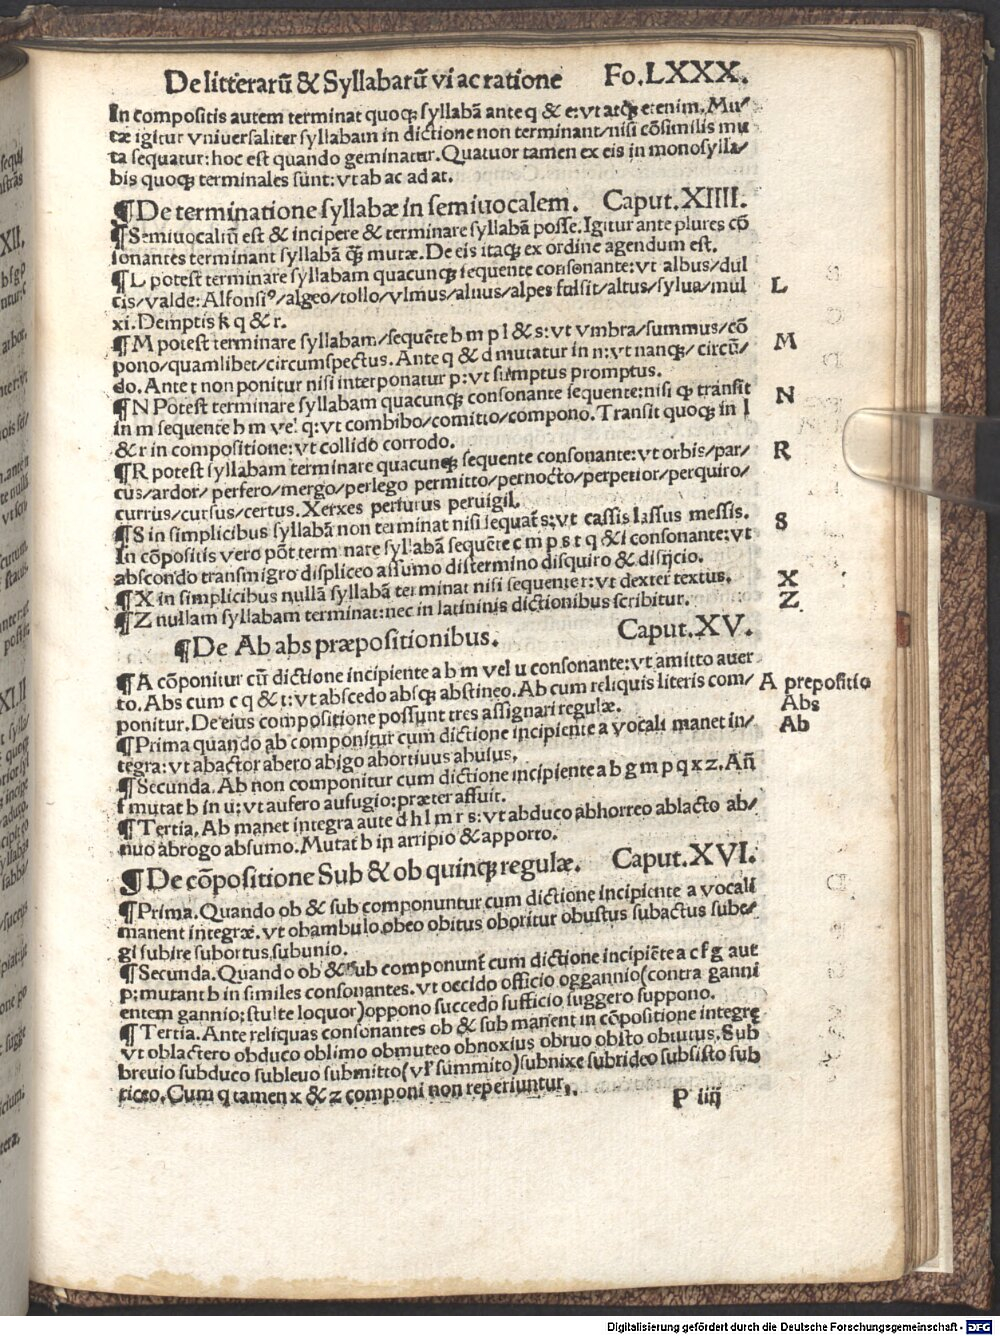 De litterarū & Syllabarū vi ac ratione Fo.LXXX.
In compositis autem terminat quoqꝫ syllabā ante q & e: vt atqꝫ etenim. Mu⸗
tæ igitur vniuersaliter syllabam in dictione non terminant/nisi cōsimilis mu
ta sequatur: hoc est quando geminatur. Quatuor tamen ex eis in monosylla⸗
bis quoqꝫ terminales sūnt: vt ab ac ad at.
¶De terminatione syllabæ in semiuocalem. Caput.XIIII.
¶Semiuocaliū est & incipere & terminare syllabā posse. Igitur ante plures cō
sonantes terminant syllabā qꝫ̄ mutæ. De eis itaqꝫ ex ordine agendum est.
¶L potest terminare syllabam quacunqꝫ sequente consonante: vt albus/dul
cis/valde: Alfonsiꝰ/algeo/tollo/vlmus/alnus/alpes fulsit/altus/sylua/mul
xi. Demptis k q & r.
L
¶M potest terminare syllabam/sequēte b m p l & s: vt vmbra/summus/cō
pono/quamlibet/circumspectus. Ante q & d mutatur in n: vt nanqꝫ/circū/
do. Ante t non ponitur nisi interponatur p: vt sumptus promptus.
M
¶N Potest terminare syllabam quacunqꝫ consonante sequente: nisi qꝫ transit
in m sequente b m vel q: vt combibo/comitto/compono. Transit quoqꝫ in l
& r in compositione: vt collido corrodo.
N
¶R potest syllabam terminare quacunqꝫ sequente consonante: vt orbis/par/
cus/ardor/ perfero/mergo/perlego permitto/pernocto/perpetior/perquiro/
currus/cursus/certus. Xerxes perfurus peruigil.
R
¶S in simplicibus syllabā non terminat nisi sequat̄ s: vt cassis lassus messis.
In cōpositis vero pōt term nare syllabā sequēte c m p s t q & i consonante: vt
abscondo transmigro displiceo assumo distermino disquiro & disijcio.
S
¶X in simplicibus nullā syllabā terminat nisi sequente t: vt dexter textus.
X
¶Z nullam syllabam terminat: nec in latininis dictionibus scribitur.
Z
¶De Ab abs præpositionibus. Caput.XV.
¶A cōponitur cū dictione incipiente a b m vel u consonante: vt amitto auer
to. Abs cum c q & t: vt abscedo absqꝫ abstineo. Ab cum reliquis literis com/
ponitur. De eius compositione possunt tres assignari regulæ.
A prepositio
Abs
Ab
¶Prima quando ab componitur cum dictione incipiente a vocali manet in/
tegra: vt abactor abero abigo abortiuus abusus.
¶Secunda. Ab non componitur cum dictione incipiente a b g m p q x z. Añ
f mutat b in u: vt aufero aufugio: præter affuit.
¶Tertia. Ab manet integra aute d h l m r s: vt abduco abhorreo ablacto ab/
nuo abrogo absumo. Mutat b in arripio & apporto.
¶De cōpositione Sub & ob quinqꝫ regulæ. Caput.XVI.
¶Prima. Quando ob & sub componuntur cum dictione incipiente a vocali
manent integræ. vt obambulo obeo obitus oboritur obustus subactus sube⸗
gi subire subortus subunio.
¶Secunda. Quando ob & sub componunt̄ cum dictione incipiēte a c f g aut
p: mutant b in similes consonantes. vt occido officio oggannio(contra ganni
entem gannio; stulte loquor)oppono succedo sufficio suggero suppono.
¶Tertia. Ante reliquas consonantes ob & sub manent in cōpositione integrę
vt oblactero obduco oblimo obmuteo obnoxius obruo obsto obtutus. Sub
breuio subduco subleuo submitto(vł summito)subnixe subrideo subsisto sub
ticeo. Cum q tamen x & z componi non reperiuntur.
P iiij
Digitalisierung gefördert durch die Deutsche Forschungsgemeinschaft - DFG